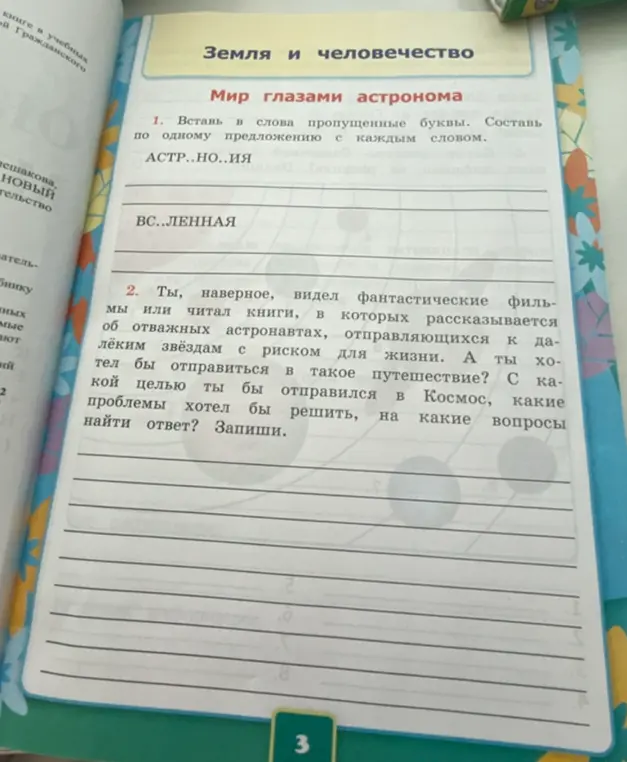 книге в учебных
й Гражданского
ешакова,
НОВЫЙ
тельство
атель-
бнику
ных
мые
ают
ий
2
Земля и человечество
Мир глазами астронома
1. Вставь в слова пропущенные буквы. Составь
по одному предложению с каждым словом.
АСТР..НО..ИЯ
ВС..ЛЕННАЯ
2. Ты, наверное, видел фантастические филь-
мы или читал книги, в которых рассказывается
об отважных астронавтах, отправляющихся к да-
лёким звёздам с риском для жизни. А ты хо-
тел бы отправиться в такое путешествие? С ка-
кой целью ты бы отправился в Космос, какие
проблемы хотел бы решить, на какие вопросы
найти ответ? Запиши.
3